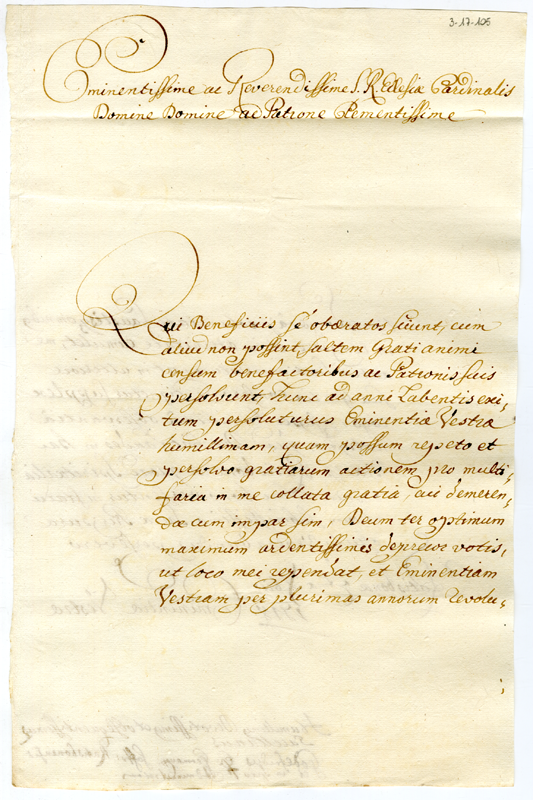 3-17-105
Eminentissime ac Reverendissime S. R. Eclesiæ Cardinalis
Domine Domine ac Patrone Clementissime
Qui Beneficiis sé obæratos sciunt, cum
aliud non possint, saltem Grati animi
censum benefactoribus ac Patronis suis
persolvunt, hunc ad anni Labentis exi-
tum persoluturus Eminentiæ Vestræ
humillimam, quam possum repeto et
persolvo gratiarum actionem pro multi
faria in me collata gratia, cui demeren-
dæ cum impar sim, Deum ter optimum
maximum ardentissimis deprecor votis,
ut loco mei rependat, et Eminentiam
Vestram per plurimas annorum revolu-